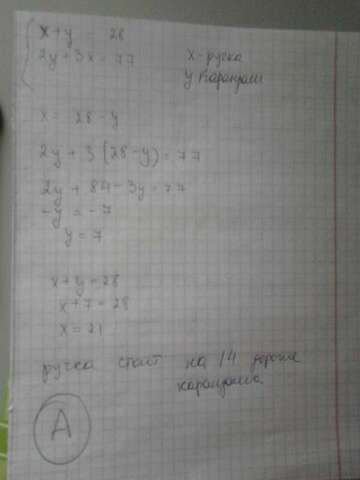 x+y = 28
2y+3x=77
x-ручка
y карандаш
x= 28-y
2y+3(28-y)=77
2y+84-3y=77
-y=-7
y=7
x+y=28
x+7=28
x=21
ручка стоит на 14 дороже
карандаша
А